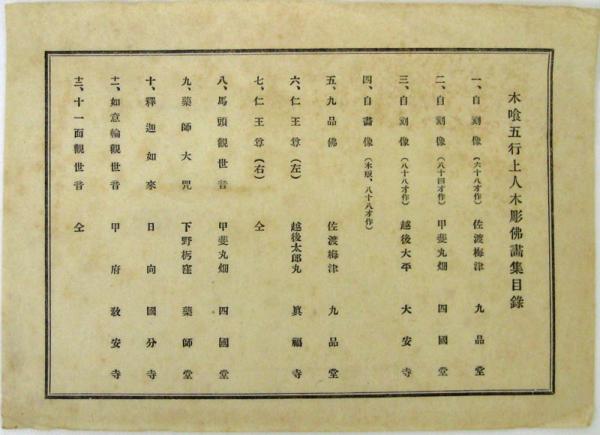 木喰五行上人木彫佛畵集目錄
一、自刻像（六十八才作）　佐渡梅津　九品堂
二、自刻像（八十四才作）　甲斐丸畑　四國堂
三、自刻像（八十八才作）　越後大平　大安寺
四、自畵像（木版、八十八才作）
五、九品佛　佐渡梅津　九品堂
六、仁王尊（左）　越後太郎丸　眞福寺
七、仁王尊（右）　仝
八、馬頭觀世音　甲斐丸畑　四國堂
九、藥師大咒　下野栃窪　藥師堂
十、釋迦如來　日向　國分寺
十一、如意輪觀世音　甲府　敎安寺
十二、十一面觀世音　仝